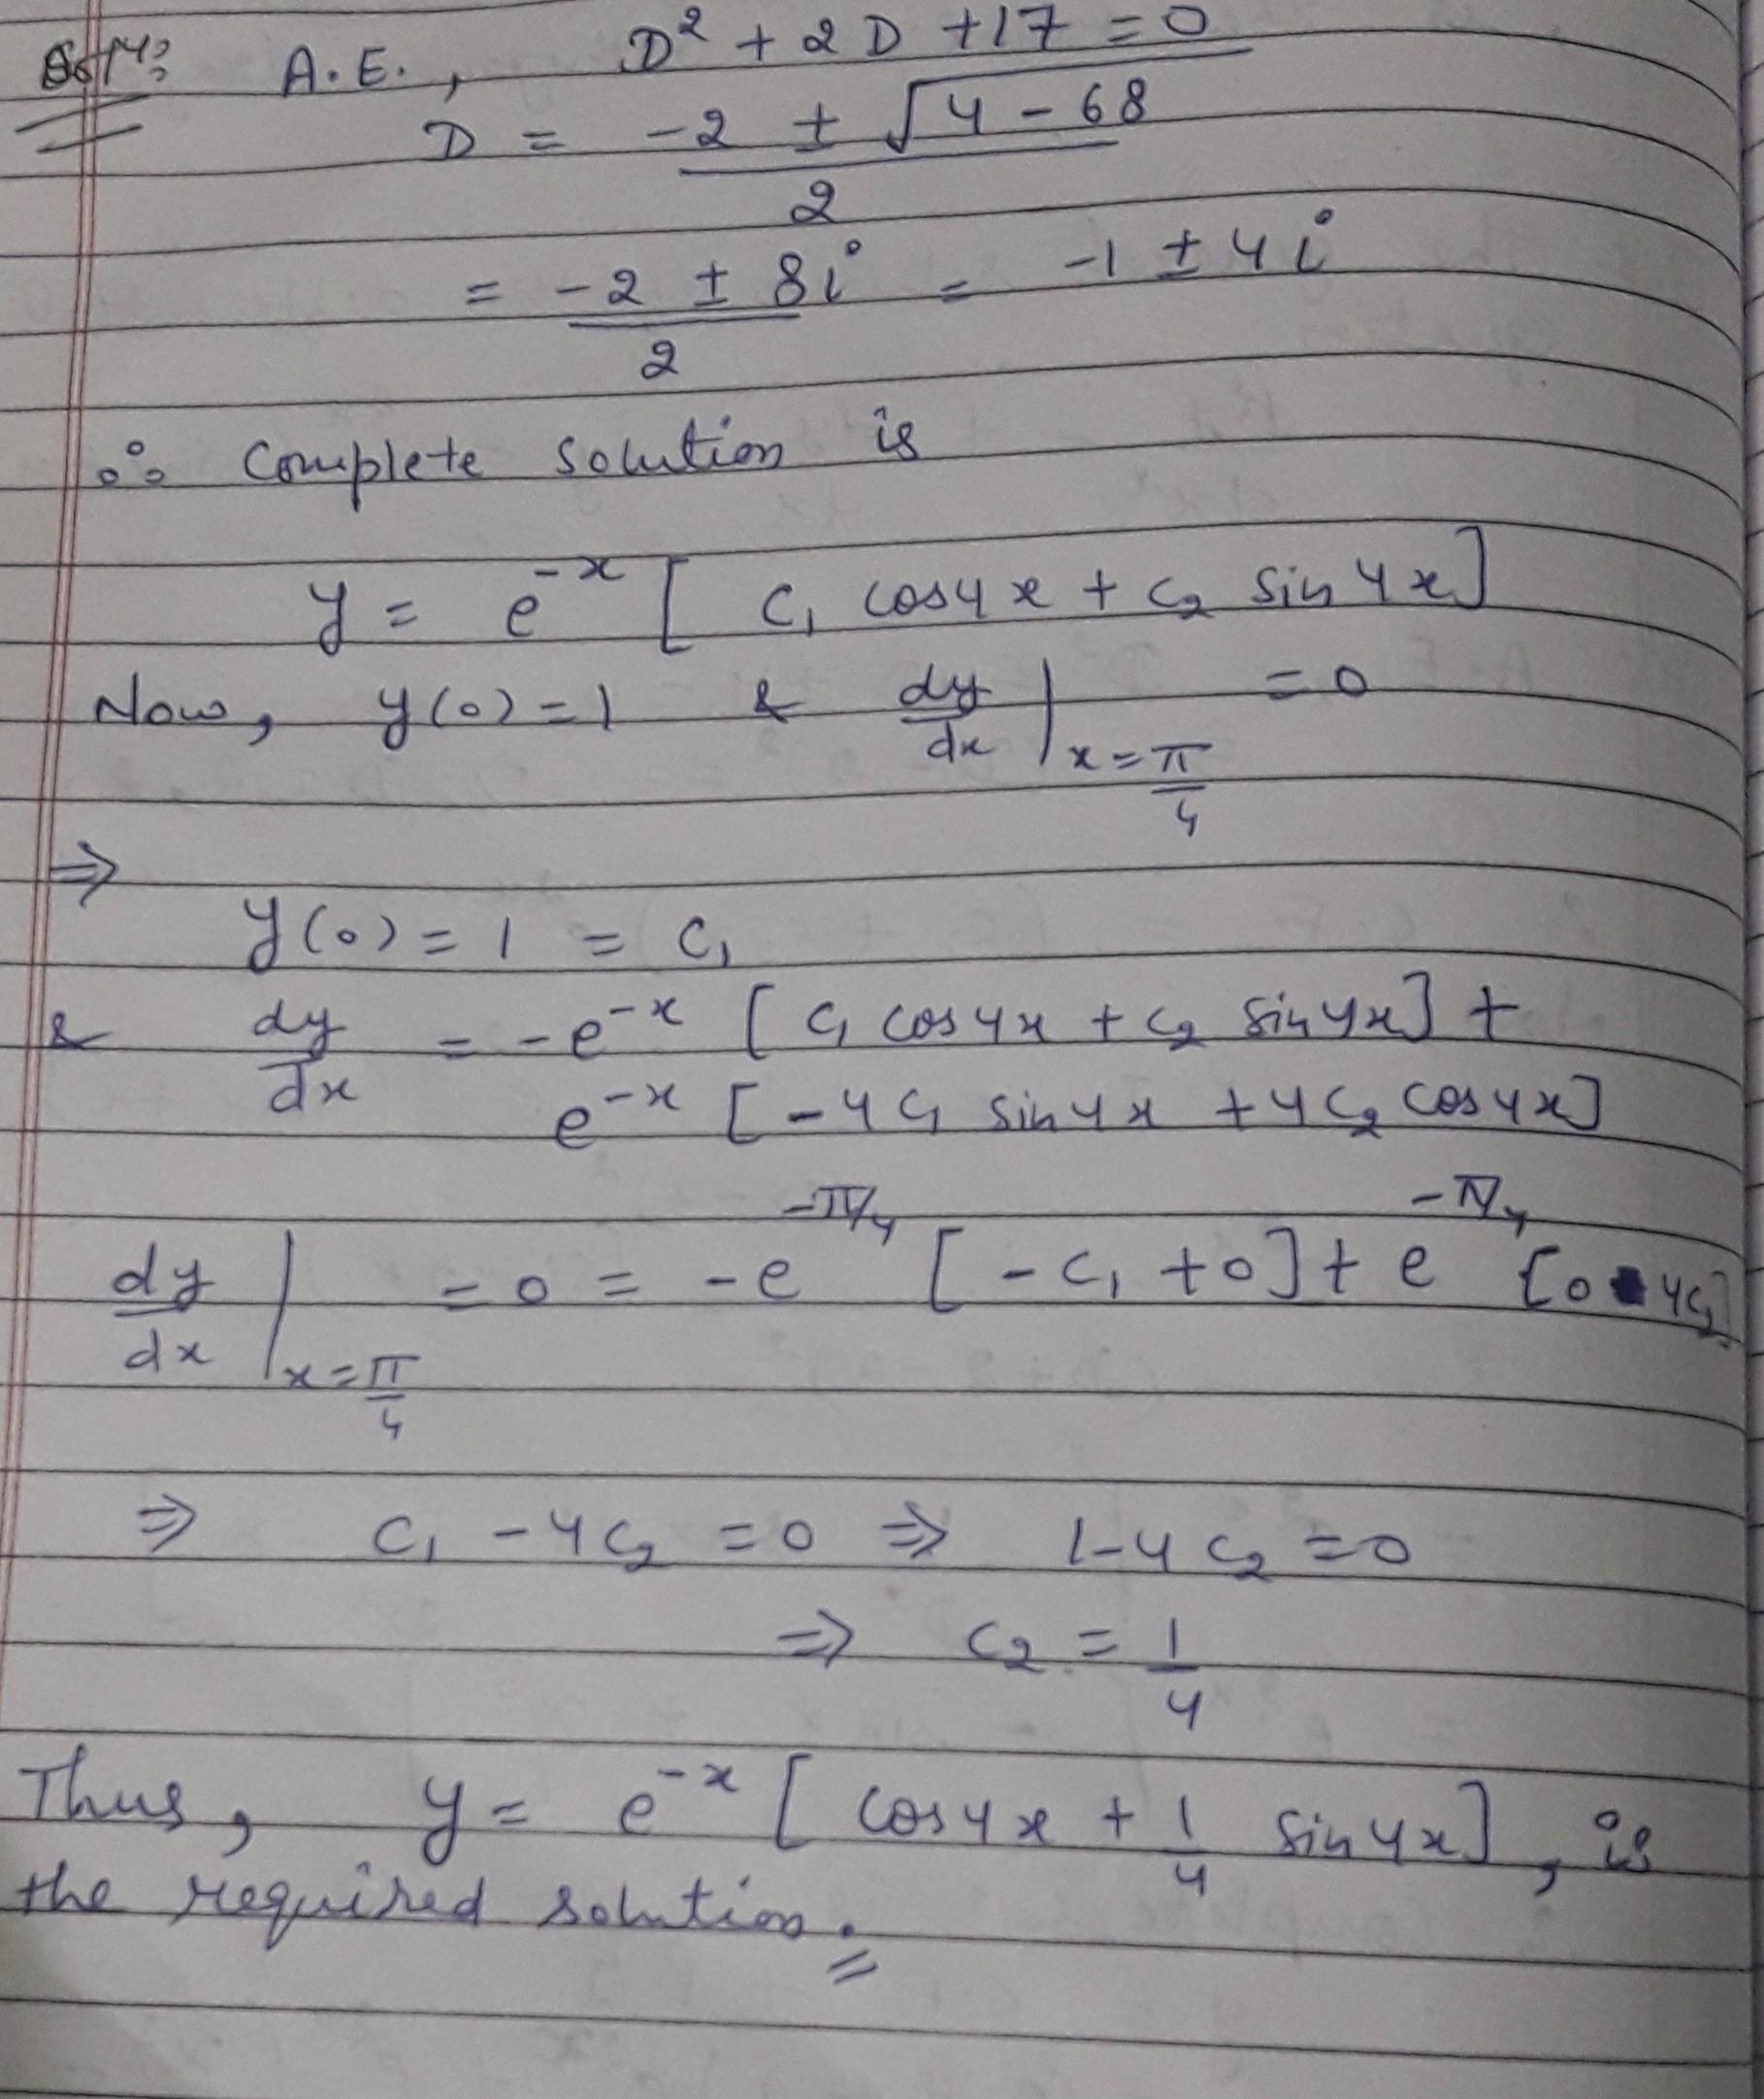 Sol<sup>n</sup>: A.E., D² + 2D + 17 = 0
D = (-2 ± √(4 - 68)) / 2
= (-2 ± 8i) / 2 = -1 ± 4i
∴ Complete solution is
y = e^(-x) [ c₁ cos4x + c₂ sin4x ]
Now, y(0) = 1 & dy/dx |_(x = π/4) = 0
⇒
y(0) = 1 = c₁
& dy/dx = -e^(-x) [ c₁ cos4x + c₂ sin4x ] +
e^(-x) [ -4c₁ sin4x + 4c₂ cos4x ]
dy/dx |_(x = π/4) = 0 = -e^(-π/4) [ -c₁ + 0 ] + e^(-π/4) [ 0 - 4c₂ ]
⇒ c₁ - 4c₂ = 0 ⇒ 1 - 4c₂ = 0
⇒ c₂ = 1/4
Thus, y = e^(-x) [ cos4x + 1/4 sin4x ], is
the required solution.